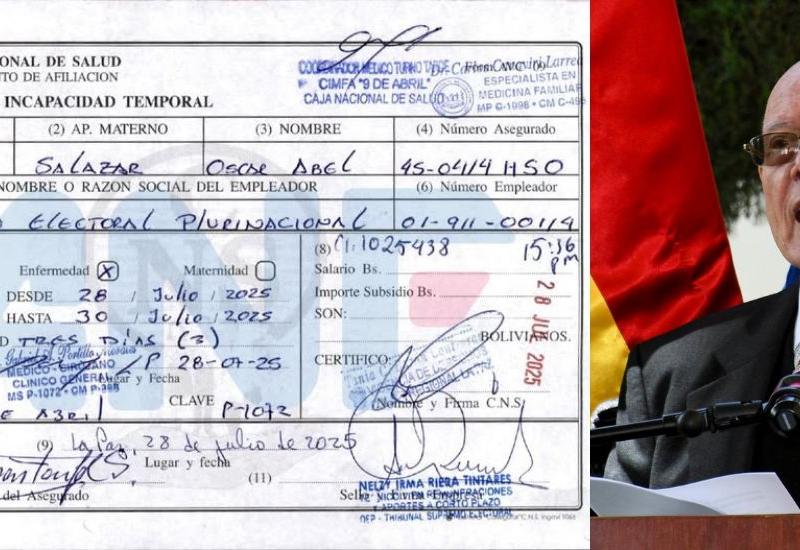 ONAL DE SALUD
TO DE AFILIACION
INCAPACIDAD TEMPORAL
COORDINADOR MEDICO TURNO TARDE
CIMFA "9 DE ABRIL"
CAJA NACIONAL DE SALUD
ESPECIALISTA EN
MEDICINA FAMILIAR
(2) AP. MATERNO (3) NOMBRE (4) Número Asegurado
SALAZAR OSCAR ABEL 45-0414 HSO
NOMBRE O RAZON SOCIAL DEL EMPLEADOR (6) Número Empleador
ELECTORAL PLURINACIONAL 01-911-00114
Enfermedad X Maternidad
(8) C.I. 1025438 15:36 PM
Salario Bs.
DESDE 28 / Julio / 2025
Importe Subsidio Bs.
HASTA 30 / Julio / 2025
SON:
D TRES DÍAS (3)
BOLIVIANOS.
28 JUL 2025
P 28-07-25
CERTIFICO:
MEDICO - CIRUJANO
CLINICO GENERAL
Lugar y Fecha
MS P-1072
CLAVE P-1072
Nombre y Firma C.N.S.
(9) La Paz, 28 de julio de 2025
Lugar y fecha
(11)
del Asegurado
NELZY IRMA RIERA TINTARES
Y APORTES A CORTO PLAZO
TRIBUNAL SUPREMO ELECTORAL